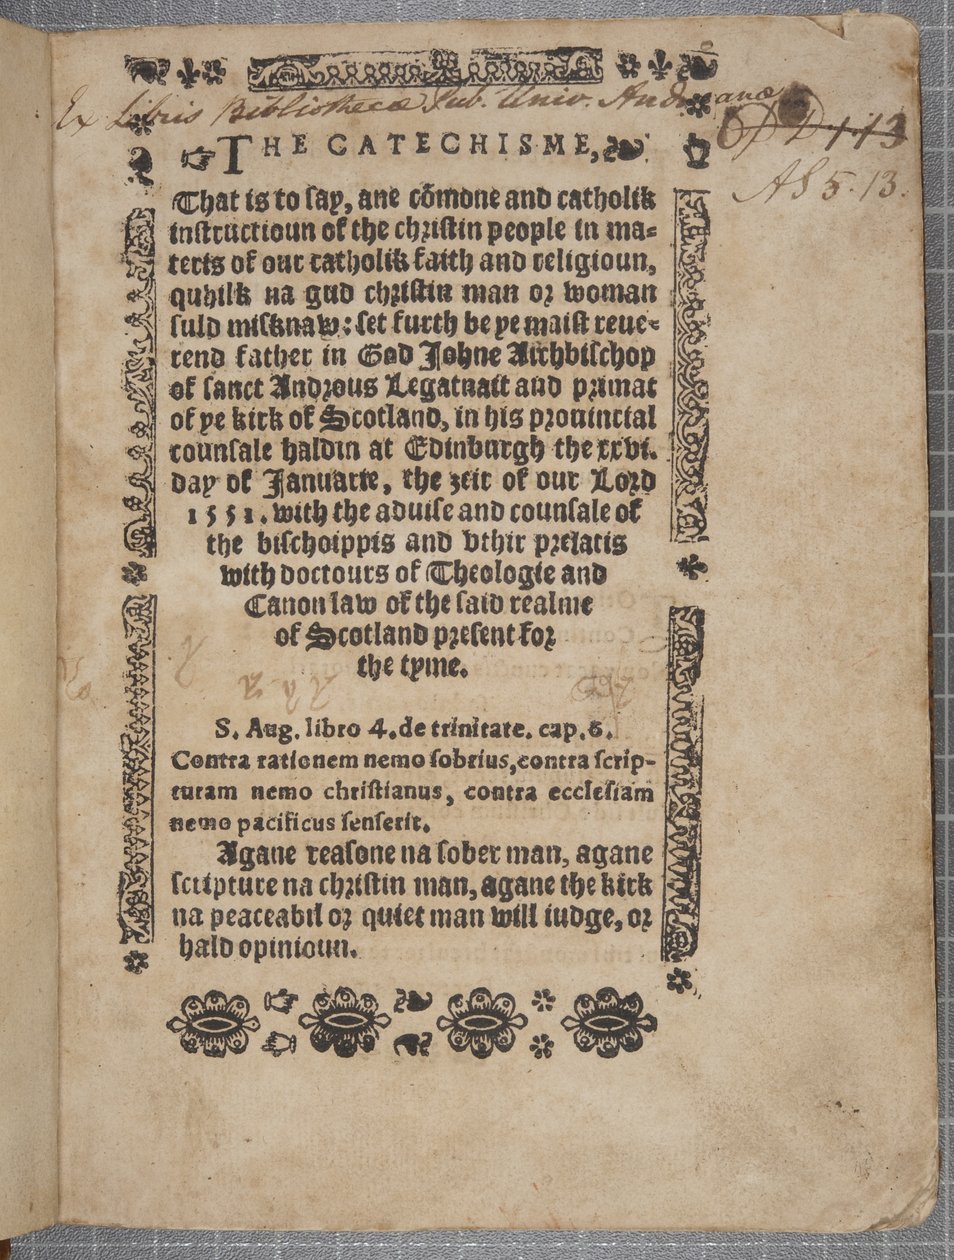 Ex Libris Bibliothecæ Pub. Univ. Andreanæ
A S 5. 13.
THE CATECHISME,
That is to ſay, ane cōmone and catholik
inſtructioun of the chriſtin people in ma⸗
teris of our catholik faith and religioun,
quhilk na gud chriſtin man or woman
ſuld miſknaw: ſet furth be ye maiſt reue⸗
rend father in God Johne Archbiſchop
of ſanct Androus Legatnait and primat
of ye kirk of Scotland, in his prouincial
counſale haldin at Edinburgh the xxvi.
day of Januarie, the ȝeir of our Lord
1551. with the aduiſe and counſale of
the biſchoippis and vthir prelatis
with doctours of Theologie and
Canon law of the ſaid realme
of Scotland preſent for
the tyme.
S. Aug. libro 4. de trinitate. cap. 6.
Contra rationem nemo ſobrius, contra ſcrip-
turam nemo chriſtianus, contra eccleſiam
nemo pacificus ſenſerit.
Agane reaſone na ſober man, agane
ſcripture na chriſtin man, agane the kirk
na peaceabil or quiet man will iudge, or
hald opinioun.